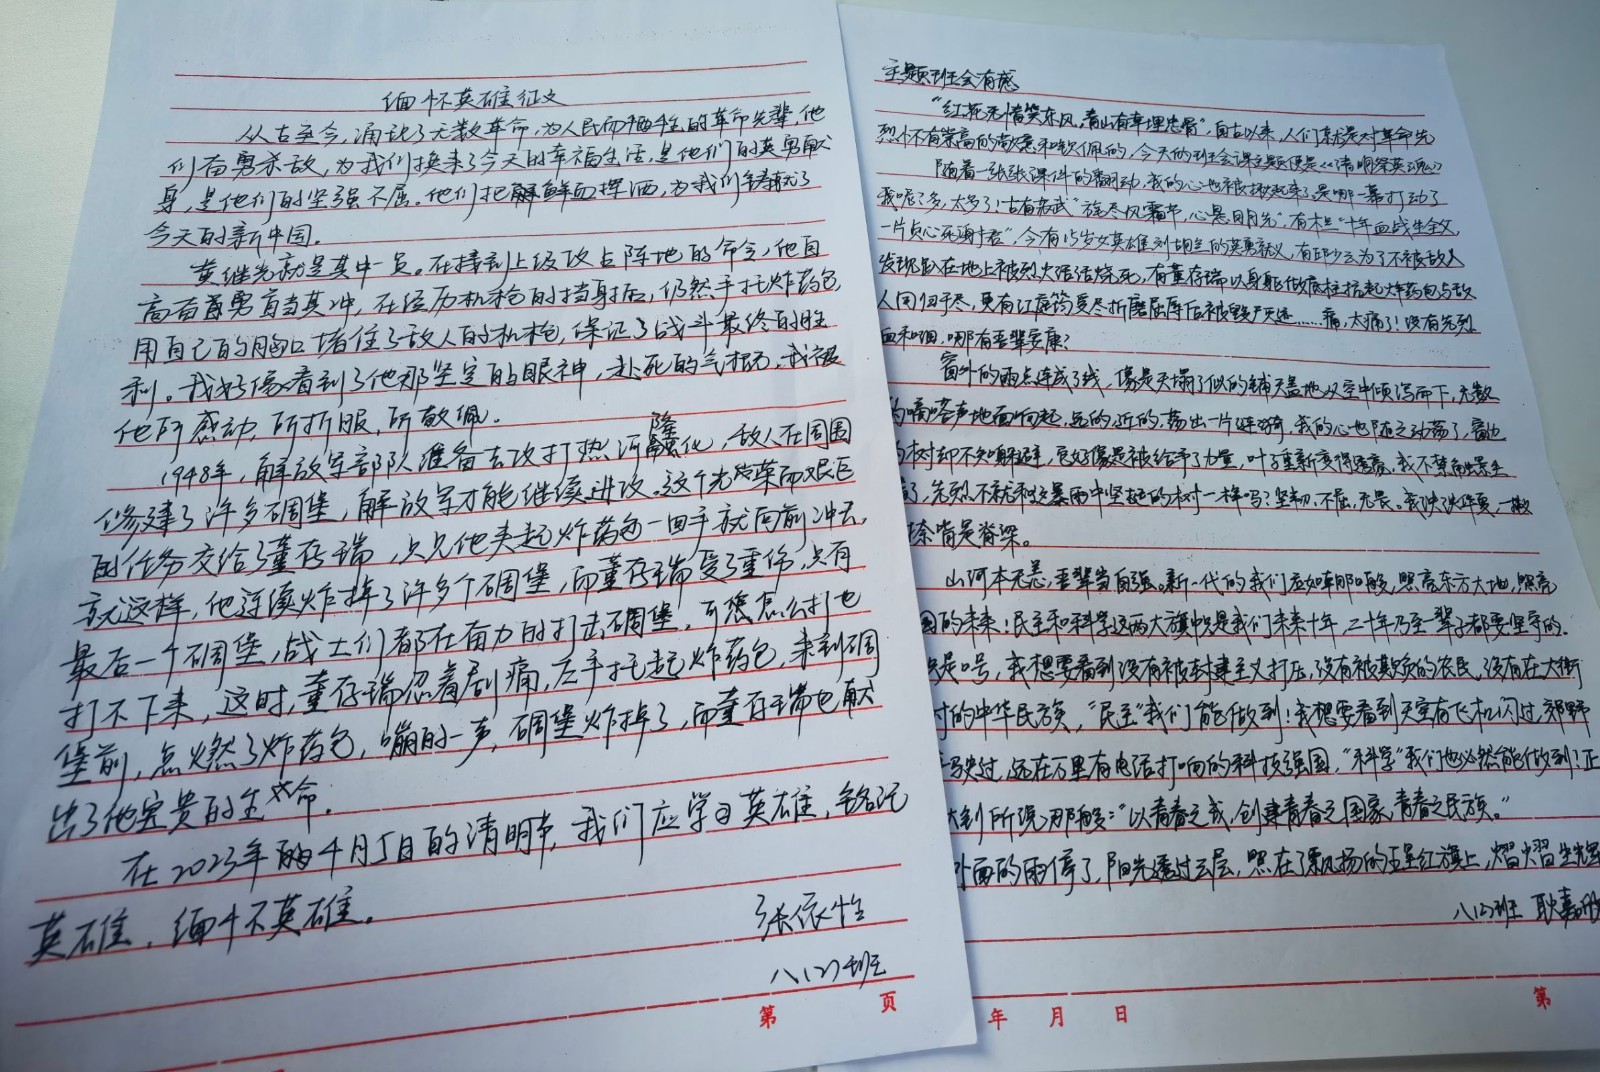 缅怀英雄征文
从古至今，涌现了无数革命，为人民而牺牲的革命先辈，他
们奋勇杀敌，为我们换来了今天的幸福生活，是他们的英勇献
身，是他们的坚强不屈。他们把鲜血挥洒，为我们铸就了
今天的新中国。
黄继光就是其中一员。在接到上级攻占阵地的命令，他自
高奋勇首当其冲，在经历机枪的挡射后，仍然手托炸药包，
用自己的胸口堵住了敌人的机枪，保证了战斗最终的胜
利。我好像看到了他那坚定的眼神，赴死的气概，我被
他所感动，所折服，所敬佩。
1948年，解放军部队准备去攻打热河隆化，敌人在周围
修建了许多碉堡，解放军才能继续进攻。这个光荣而艰巨
的任务交给了董存瑞，只见他夹起炸药包一甩手就向前冲去，
就这样，他连续炸掉了许多个碉堡，而董存瑞受了重伤，只有
最后一个碉堡，战士们都在奋力的打击碉堡，可怎么打也
打不下来，这时，董存瑞忍着剧痛，左手托起炸药包，来到碉
堡前，点燃了炸药包，嘣的一声，碉堡炸掉了，而董存瑞也献
出了他宝贵的生命。
在2023年的4月5日的清明节，我们应学习英雄，铭记
英雄，缅怀英雄。
张依怡
八（2）班
第 页
主题班会有感
“红花无情笑东风，青山有幸埋忠骨”自古以来，人们就是对革命先
烈怀有崇高的敬意和钦佩的，今天的班会课主题便是《清明祭英魂》
随着一张张课件的翻动，我的心也被揪起来了，是哪一幕打动了
我呢？多，太多了！古有苏武“旄尽风霜节，心悬日月光”，有杜“十年血战生余
一片贞心死谢君”，今有15岁女英雄刘胡兰的英勇就义，有邱少云为了不被敌人
发现趴在地上被烈火活活烧死，有董存瑞以身躯做底柱托起炸药包与敌
人同归于尽，更有江姐受尽折磨屈辱后被毁尸灭迹……痛，太痛了！没有先烈
血和泪，哪有吾辈安康？
窗外的雨点连成了线，像是天塌了似的铺天盖地从空中倾泻而下，无数
的嘀嗒声地面响起，远的，近的，荡出一片涟漪，我的心也随之动荡了，窗边
的树却不知躲避，它好像是被给予了力量，叶子重新变得透亮。我不禁
了，先烈不就和这暴雨中坚挺的树一样吗？坚韧，不屈，无畏。
皆是脊梁。
山河本无恙，吾辈当自强。新一代的我们应如那般，照亮东方大地，照亮
国的未来！民主和科学这两大旗帜是我们未来十年，二十年乃至一辈子都要坚守的。
是口号，我想要看到没有被封建主义打压，没有被欺负的农民，没有在大街
的中华民族，“民主”我们能做到！我想要看到天空有飞机闪过，郊野
驶过，远在万里有电话打响的科技强国，“科学”我们也必然能做到！正
大钊所说那般：“以青春之我，创建青春之国家，青春之民族。”
外面的雨停了，阳光透过云层，照在了飘扬的五星红旗上，熠熠生辉
八（2）班 耿嘉
年 月 日
第